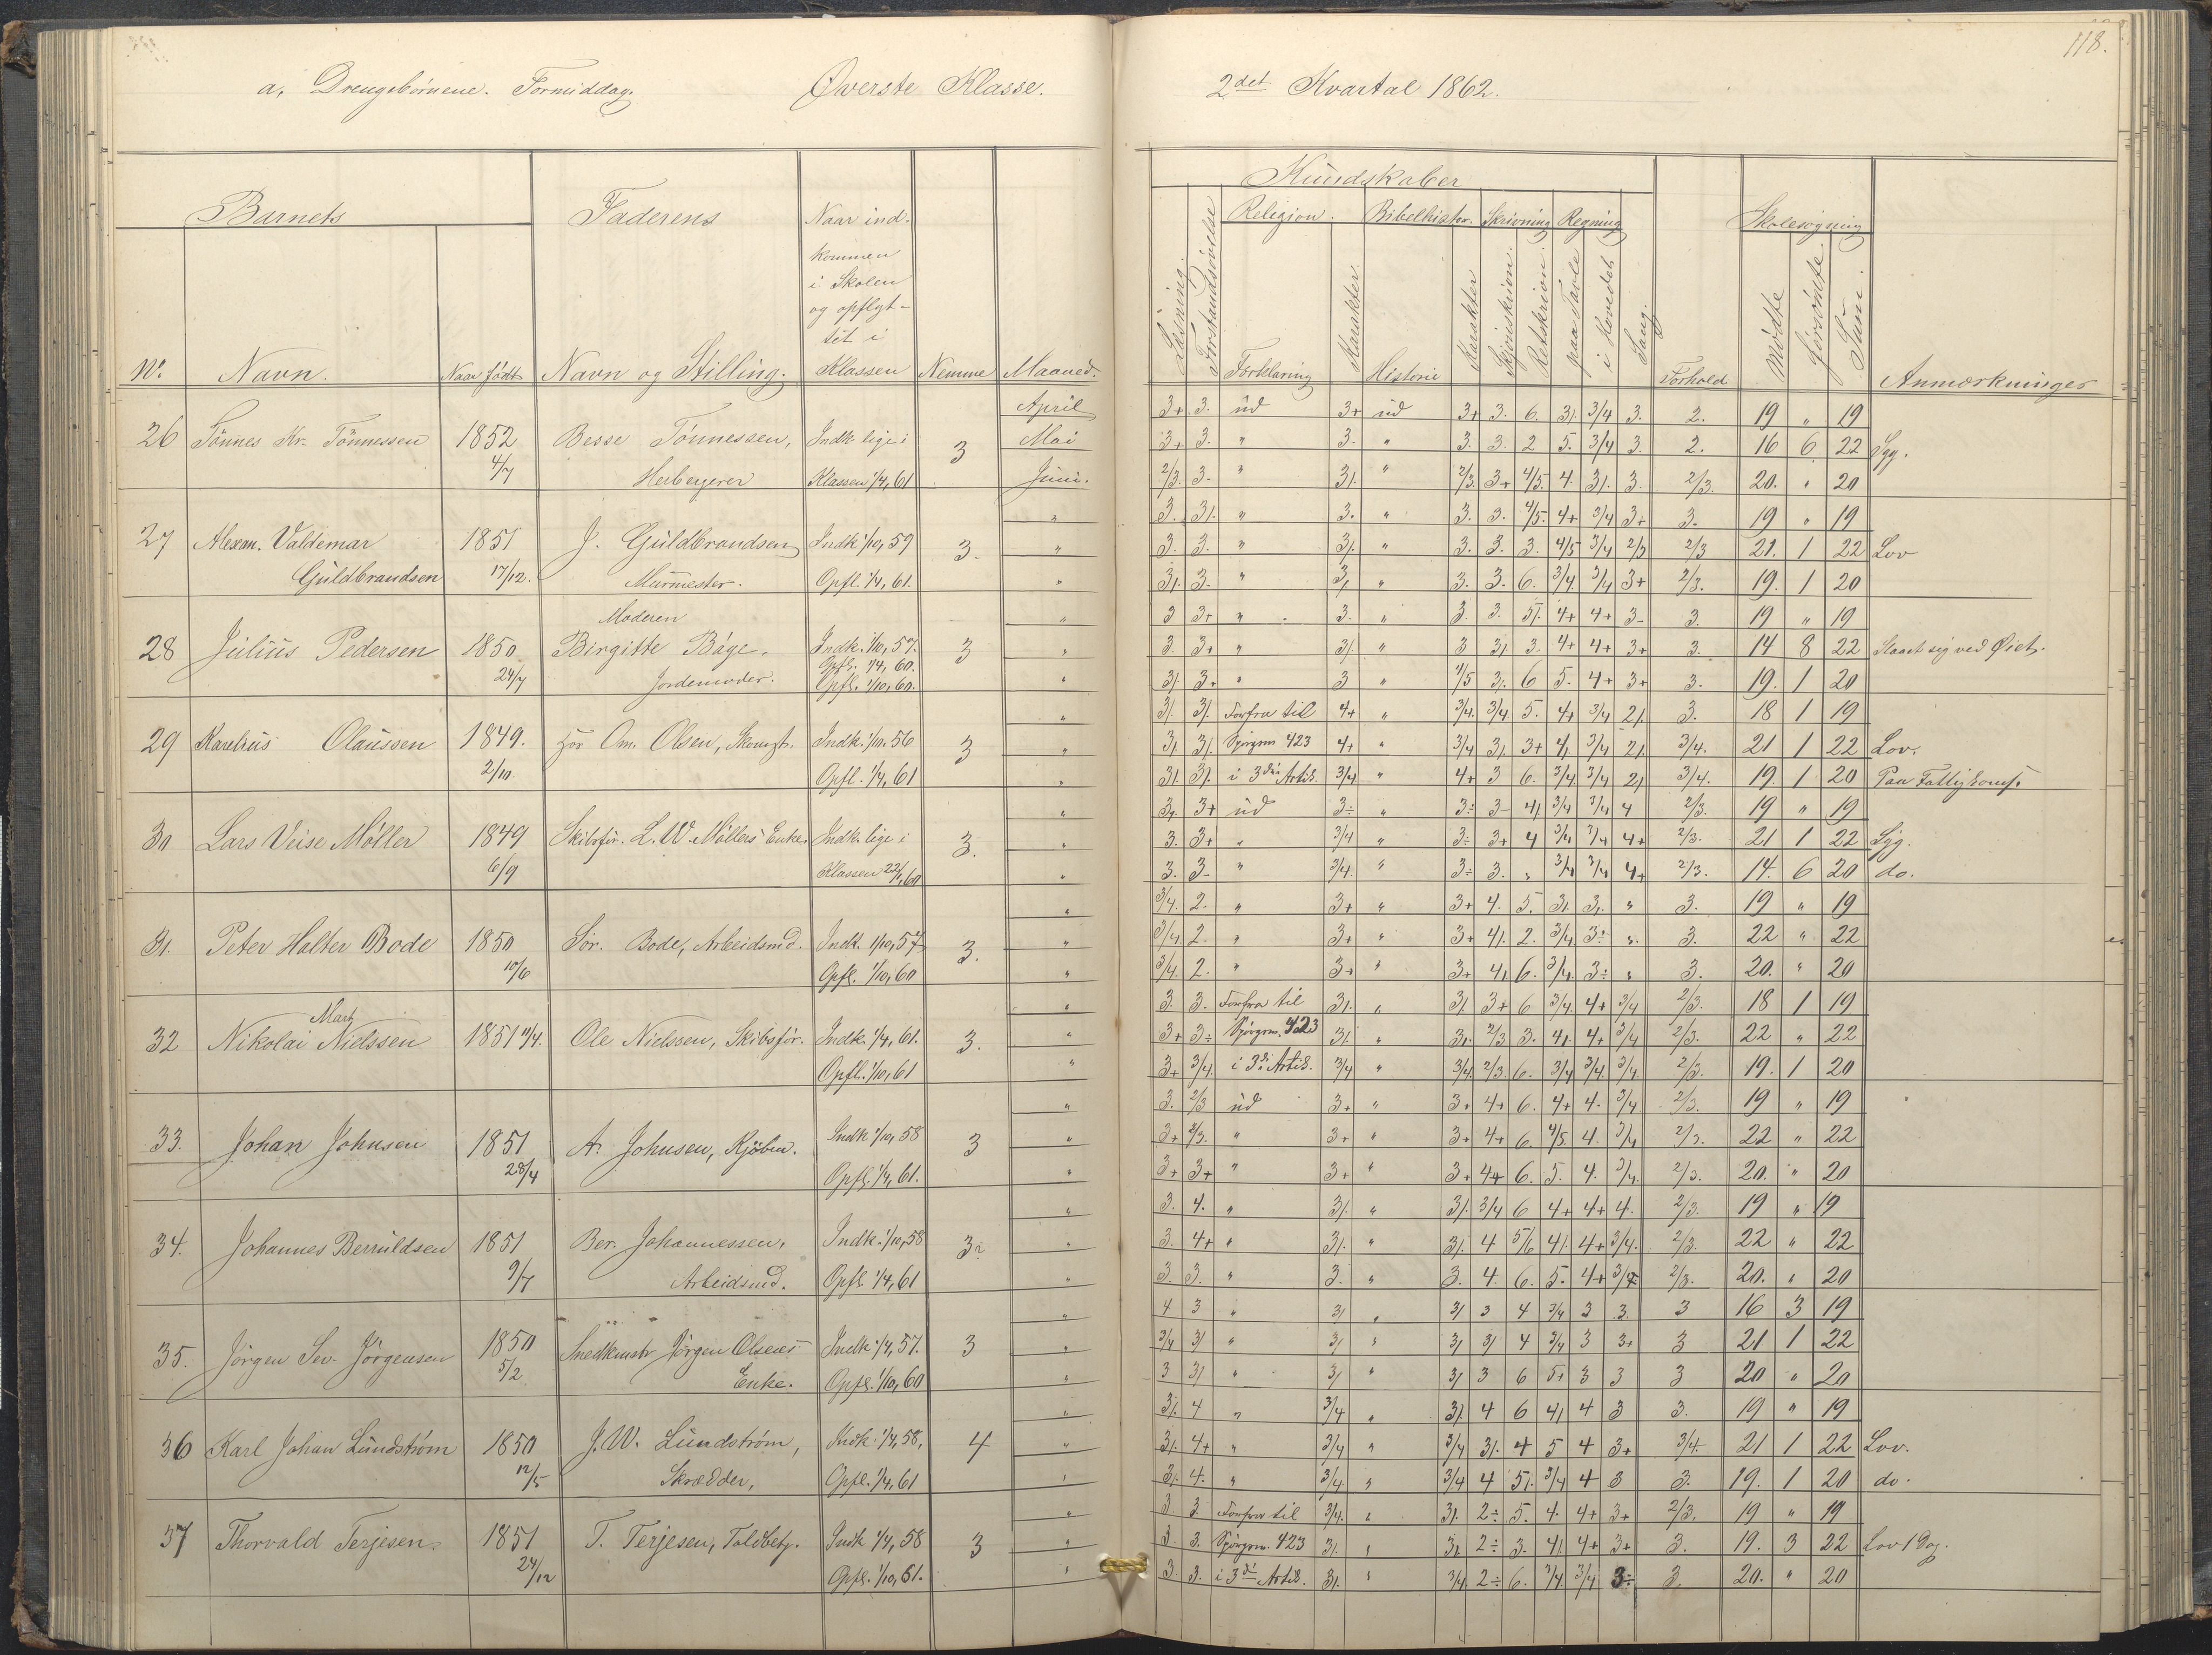 118.
a, Drengebørnene. Formiddag. Øverste Klasse. 2det Kvartal 1862.
Barnets Faderens Naar ind-
kommen
i Skolen
og opflyt-
tet i
No. Navn. Naar født Navn og Stilling. Klassen Nemme Maaned.
Kundskaber
Religion. Bibelhistor. Skrivning Regning Skolesøgning
Læsning. Forstandsøvelse Forklaring Karakter Historie Karakter Skjønskrivn. Retskrivn. paa Tavle i Hovedet Sang. Forhold Mødte Forsømte Sum. Anmærkninger
April 3+ 3. ud 3+ ud 3+ 3. 6. 3/. 3/4 3. 2. 19 " 19
26 Tønnes Kr. Tønnessen 1852 Besse Tønnessen, Indk. lige i 3 Mai 3+ 3. " 3. " 3. 3. 2 5. 3/4 3. 2. 16 6 22 Syg.
4/7 Herbergerer Klassen 1/4, 61 Juni. 2/3. 3. " 3/. " 2/3. 3+ 4/5. 4. 3/. 3. 2/3. 20. " 20
" 3. 3/. " 3. " 3. 3. 4/5. 4+ 3/4 3+ 3. 19 " 19
27 Alexan. Valdemar 1851 J. Guldbrandsen Indk. 1/10, 59 3. " 3. 3. " 3/. " 3. 3. 3. 4/5 3/4 2/3 2/3 21. 1 22 Lov
Guldbrandsen 17/12. Murmester. Opfl. 1/4, 61. " 3/. 3. " 3/. " 3. 3. 6. 3/4. 3/4 3+ 2/3. 19. 1 20
Moderen " 3 3+ " 3. " 3. 3. 5/. 4+ 4+ 3- 3. 19 " 19
28 Julius Pedersen 1850 Birgitte Båge. Indk. 1/10, 57. 3 " 3. 3+ " 3/. " 3 3/. 3. 4+ 4+ 3+ 3. 14 8 22 Slaaet sig ved Øiet.
Opfl. 1/4, 60.
24/7 Jordemoder. Opfl. 1/10, 60. " 3/. 3+ " 3 " 4/5 3/. 6 5. 4+ 3+ 3. 19. 1 20
" 3/. 3/. Forfra til 4+ " 3/4. 3/4. 5. 4+ 3/4 2/. 3. 18 1 19
29 Karelius Olaussen 1849. Om. Olsen, Indk. 1/10. 56 3 " 3/. 3/. Spörgsm 423 4+ " 3/4 3/. 3+ 4/. 3/4 2/. 3/4. 21 1 22 Lov.
2/10. Opfl. 1/4, 61 " 3/. 3/. i 3die Artik. 3/4 " 4+ 3 6. 3/4. 3/4 2/ 3/4. 19. 1 20 Paa Fattigkomf.
" 3/. 3+ ud 3÷ " 3÷ 3- 4/. 3/4 3/4 4 2/3. 19 " 19
30 Lars Veise Møller 1849 Skibsfør. L. W. Møllers Enke. Indk. lige i 3. " 3. 3+ " 3/4 " 3÷ 3+ 4 3/4 3/4 4+ 2/3. 21 1 22 Syg.
6/9 Klassen 60 " 3. 3- " 3/4. " 3÷ 3. " 3/4 3/4 4+ 2/3. 14. 6 20 do.
" 3/4. 2. " 3+ " 3+ 4. 5. 3/. 3/. " 3. 19 " 19
31. Peter Halter Bode 1850 Sör. Bode, Arbeidsmd. Indk. 1/10, 57 3. " 3/4. 2. " 3+ " 3+ 4/. 2. 3/4. 3÷ ". 3. 22 " 22
10/6 Opfl. 1/10, 60 " 3/4. 2. " 3+ " 3+ 4/. 6. 3/4. 3÷ " 3. 20. " 20
Mart. " 3. 3. Forfra til 3/. " 3/. 3+ 6 3/4. 4+ 3/4 2/3. 18 1 19
32 Nikolai Nielssen 1851 11/4. Ole Nielssen, Skibsför. Indk. 1/4, 61. 3. " 3+ 3÷ Spörgsm. 423 3/. " 3/. 2/3 3. 4/. 4+ 3/4 2/3. 22 " 22
Opfl. 1/10, 61 " 3+ 3/4. i 3die Artik. 3/4 " 3/4. 2/3. 6. 3/4 3/4. 3/4. 2/3. 19. 1 20
" 3. 2/3 ud 3+ " 3+ 4+ 6. 4+ 4. 3/4 2/3. 19 " 19
33. Johan Johnsen 1851 A. Johnsen, Kjöbm. Indk 1/10, 58 3 " 3+ 2/3. " 3+ " 3+ 4+ 6 4/5 4. 3/4 2/3. 22 " 22
28/4 Opfl. 1/4, 61. " 3+ 3+ " 3+ " 3+ 4+ 6. 5. 4. 3/4. 2/3. 20. " 20
" 3. 4. " 3/. " 3/. 3/4 6 4+ 4+ 4. 2/3. 19 " 19
34. Johannes Berruldsen 1851 Ber. Johannessen, Indk. 1/10, 58 3. " 3. 4+ " 3/. " 3/. 4 5/6 4/. 4+ 3/4. 2/3. 22 " 22
9/7 Arbeidsmd. Opfl. 1/4, 61 " 3. 3. " 3. " 3. 4. 6. 5. 4+ 3/4 2/3. 20. " 20
" 4 3 " 3/ " 3/ 3 4 3/4 3 3. 3 16 3 19
35. Jörgen Sev. Jörgensen 1850 Snedkmstr Jörgen Olsens Indk 1/4, 57. 3 " 3/4 3/ " 3/ " 3/ 3/ 4 3/4 3 3+ 3 21 1 22
5/2 Enke. Opfl. 1/10, 60 " 3 3/ " 3/ " 3/ 3 6 5+ 3 3 3 20 " 20
" 3/. 4 " 3/4 " 3/. 4 6 4/ 4 3 3. 19 " 19
36 Karl Johan Lundstrøm 1850 J. W. Lundstrøm, Indk. 1/4, 58, 4 " 3/. 4+ " 3/4 " 3/4 3/. 4 5 4 3+ 3/4. 21 1 22 Lov.
12/5 Skrædder, Opfl. 1/4, 61 " 3/. 4. " 3/4 " 3/4 4 5/. 3/4 4 3 3. 19. 1 20 do.
" 3 3. Forfra til 3/4. " 3/. 2÷ 5. 4. 4+ 3+ 2/3. 19 " 19
37 Thorvald Terjesen. 1851 T. Terjesen, Toldbetj. Indk 1/4, 58 3 " 3 3. Spörgsm. 423 3/. " 3/. 2÷ 3. 4/. 4+ 3+ 3. 19. 3 22 Lov 1 Dag.
24/12 Opfl. 1/10, 61. " 3. 3. i 3die Artik. 3/. " 3/4. 2÷ 6. 3/4. 3/4 3÷ 3. 20. " 20